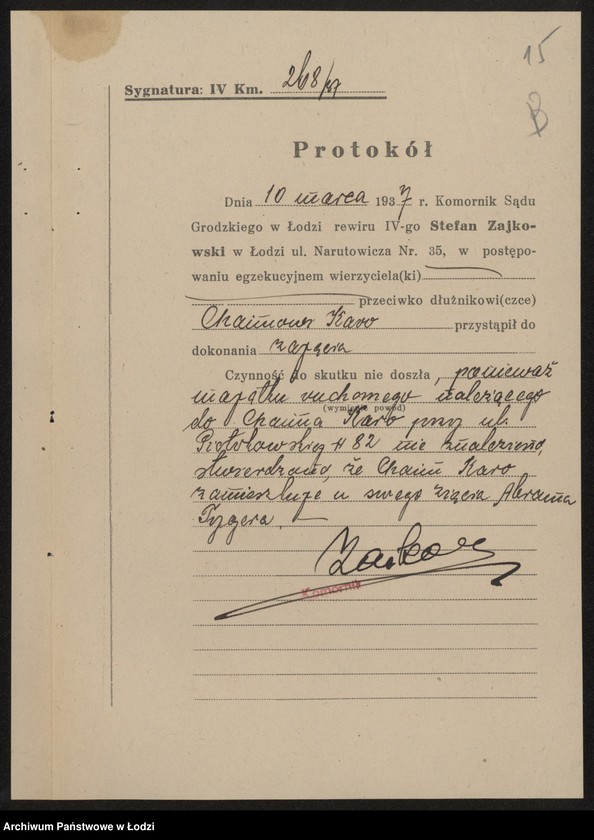 15
B
Sygnatura: IV Km. 268/37
Protokół
Dnia 10 marca 1937 r. Komornik Sądu
Grodzkiego w Łodzi rewiru IV-go Stefan Zajko-
wski w Łodzi ul. Narutowicza Nr. 35, w postępo-
waniu egzekucyjnem wierzyciela(ki)
przeciwko dłużnikowi(czce)
Chaimowi Karo przystąpił do
dokonania zajęcia
Czynność do skutku nie doszła, ponieważ
majątku ruchomego należącego
(wymienić powód)
do Chaima Karo przy ul.
Piotrkowskiej # 82 nie znaleziono,
stwierdzono, że Chaim Karo
zamieszkuje u swego zięcia Abrama
Tygera.
Zajkow
Komornik
Archiwum Państwowe w Łodzi